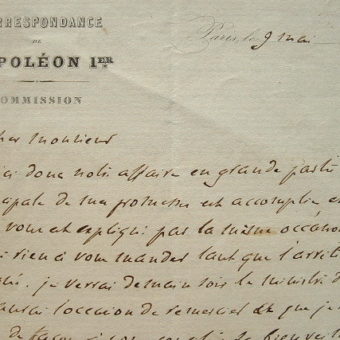 RRESPONDANCE
DE
POLÉON IER
COMMISSION
Paris, le 9 mai
her monsieur
i donc notre affaire en grande partie
cipale de ma promesse est accomplie et
vous est expliqué par la même occasion
rien à vous mander tant que l'arrêté
je verrai demain soir le ministre d
aurai l'occasion de remercier et que je
de